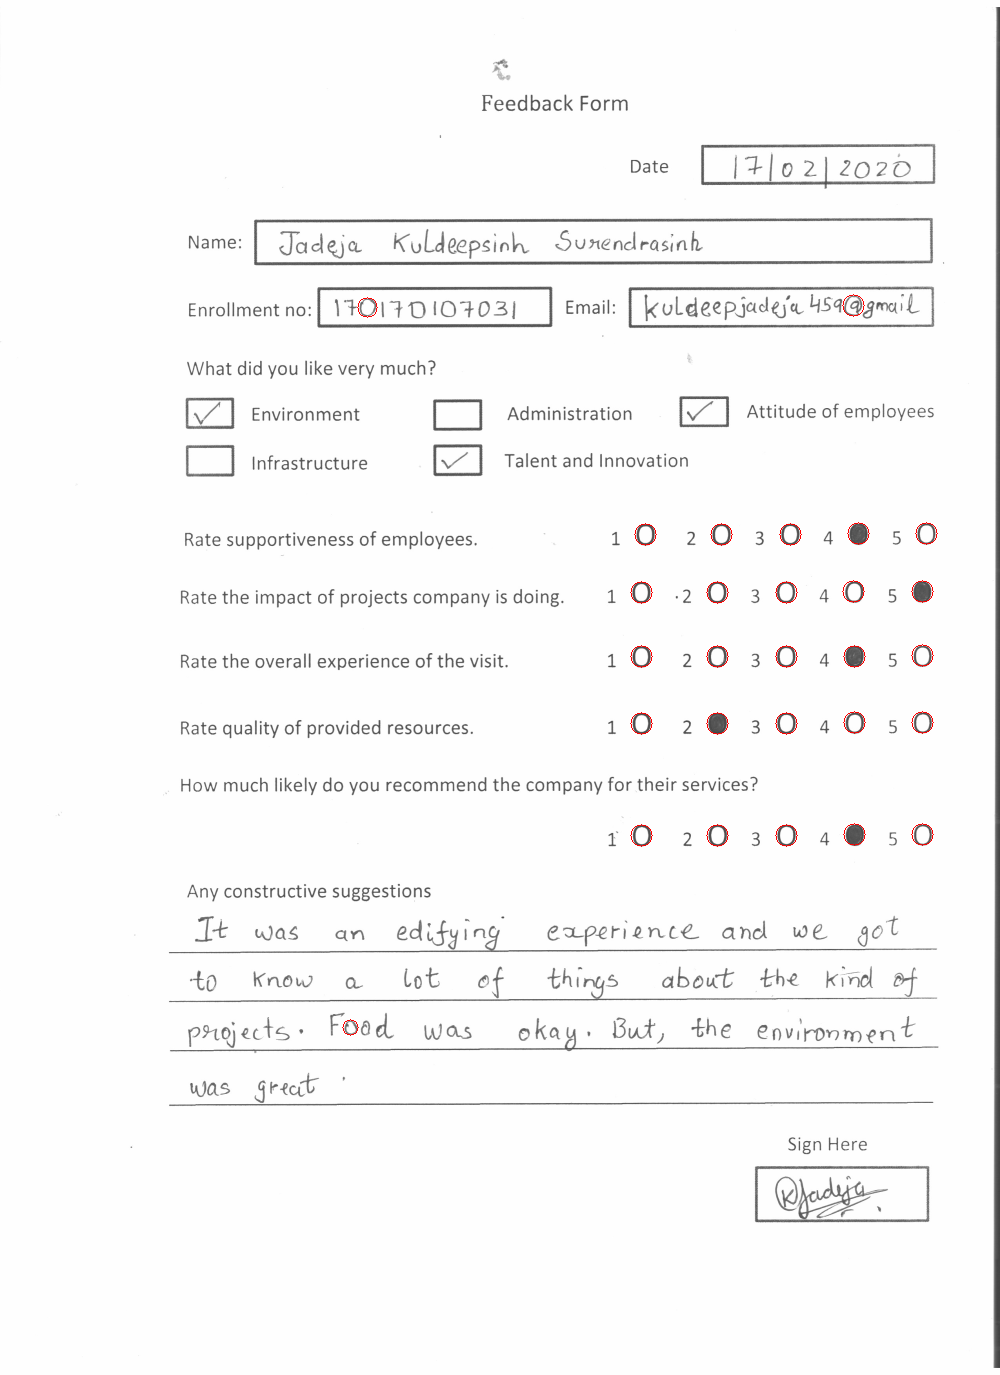 Feedback Form
Date 17/02/2020
Name: Jadeja Kuldeepsinh Surendrasinh
Enrollment no: 170170107031 Email: kuldeepjadeja459@gmail
What did you like very much?
Environment Administration Attitude of employees
Infrastructure Talent and Innovation
Rate supportiveness of employees. 1 2 3 4 5
Rate the impact of projects company is doing. 1 2 3 4 5
Rate the overall experience of the visit. 1 2 3 4 5
Rate quality of provided resources. 1 2 3 4 5
How much likely do you recommend the company for their services?
1 2 3 4 5
Any constructive suggestions
It was an edifying experience and we got
to know a lot of things about the kind of
projects. Food was okay. But, the environment
was great.
Sign Here
KJadeja